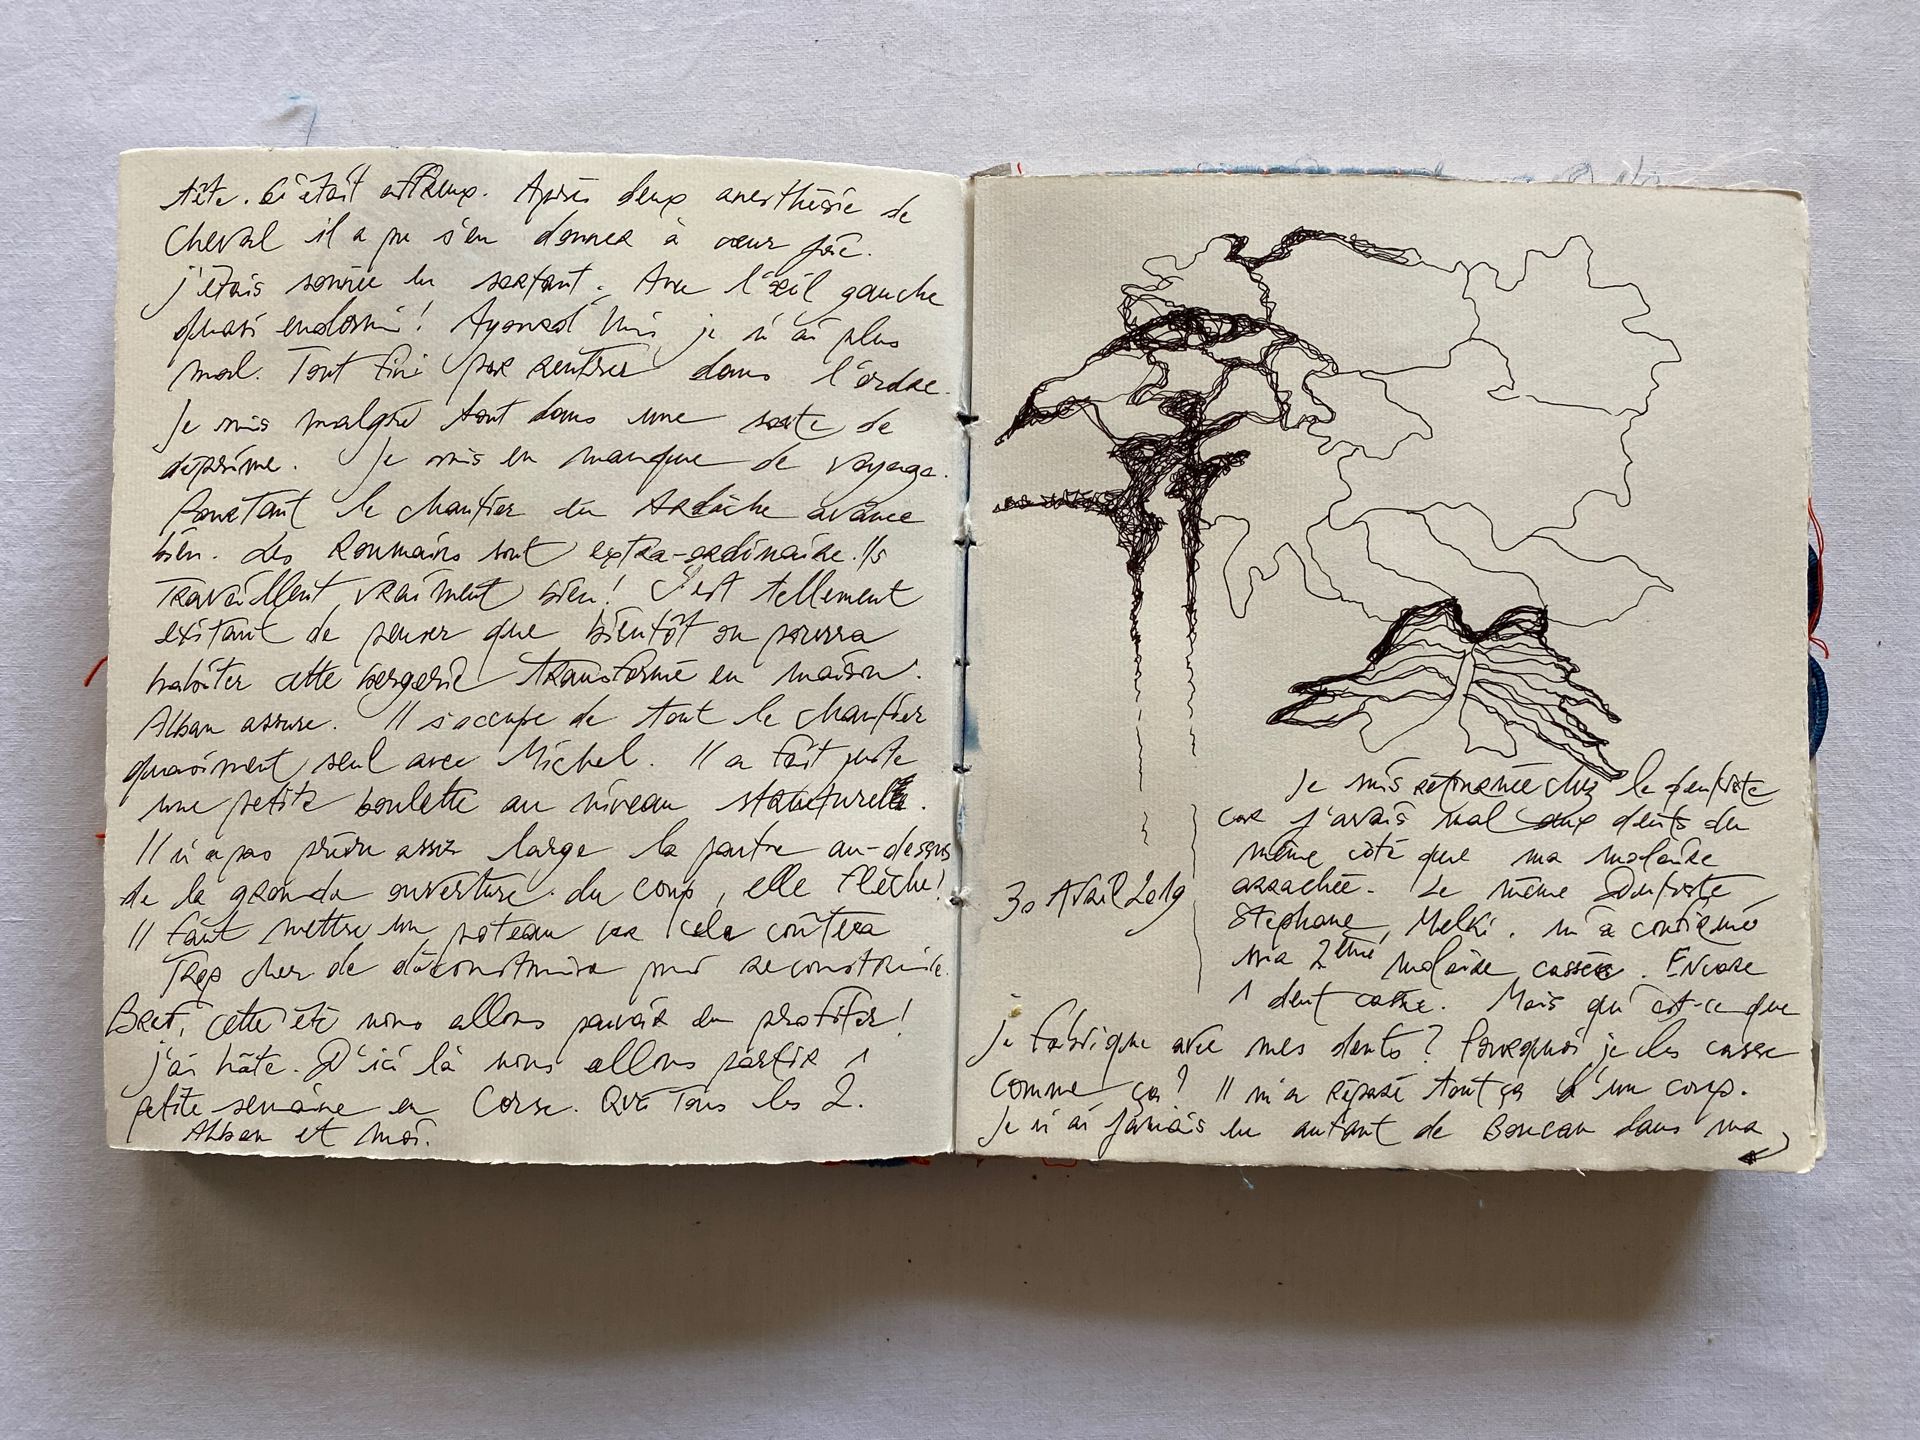 tête. C'était affreux. Après deux anesthésie de
cheval il a pu s'en donner à cœur joie.
j'étais sonnée en sortant. Avec l'œil gauche
quasi endormi! Aujourd'hui je n'ai plus
mal. Tout fini par rentrer dans l'ordre.
Je suis malgré tout dans une sorte de
déprime. Je suis en manque de voyage.
Pourtant le chantier en Ardèche avance
bien. Les Roumains sont extra-ordinaire. Ils
travaillent vraiment bien! C'est tellement
exitant de penser que bientôt on pourra
habiter cette bergerie transformé en maison.
Alban assure. Il s'occupe de tout le chantier
quasiment seul avec Michel. Il a fait juste
une petite boulette au niveau
Il n'a pas prévu assez large la poutre au-dessus
de la grande ouverture. du coup, elle flèche!
Il faut mettre un poteau car cela coûtera
trop cher de déconstruire puis reconstruire.
Bref, cette été nous allons pouvoir en profiter!
j'ai hâte. D'ici là nous allons partir 1
petite semaine en Corse. Que Tous les 2.
Alban et moi.
30 Avril 2019
Je suis retournée chez le dentiste
car j'avais mal aux dents du
même côté que ma molaire
arrachée. Le même Dentiste,
Stéphane, Melki. m'a confirmé
ma 2ème molaire cassée. Encore
1 dent cassée. Mais qu'est-ce que
je fabrique avec mes dents? Pourquoi je les casse
comme ça? Il m'a réparé tout ça d'un coup.
Je n'ai jamais eu autant de Boucan dans ma